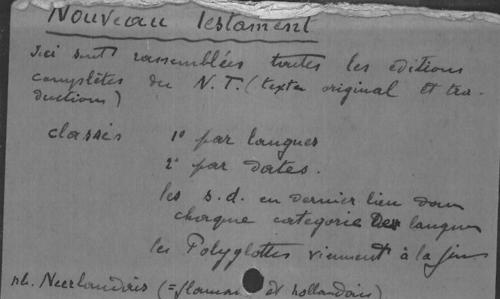 Nouveau Testament
ici sont rassemblées toutes les editions
complètes du N.T. (texte original et tra-
ductions)
classés 1° par langues
2° par dates.
les s.d. en dernier lieu dans
chaque categorie de langues
les Polyglottes viennent à la fin
nb. Neerlandais (= flamand et hollandais)